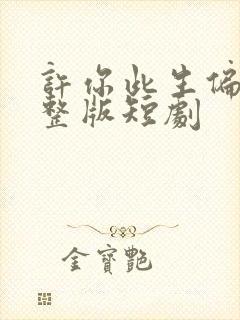 許你此生偏
整版短劇
金寶艷